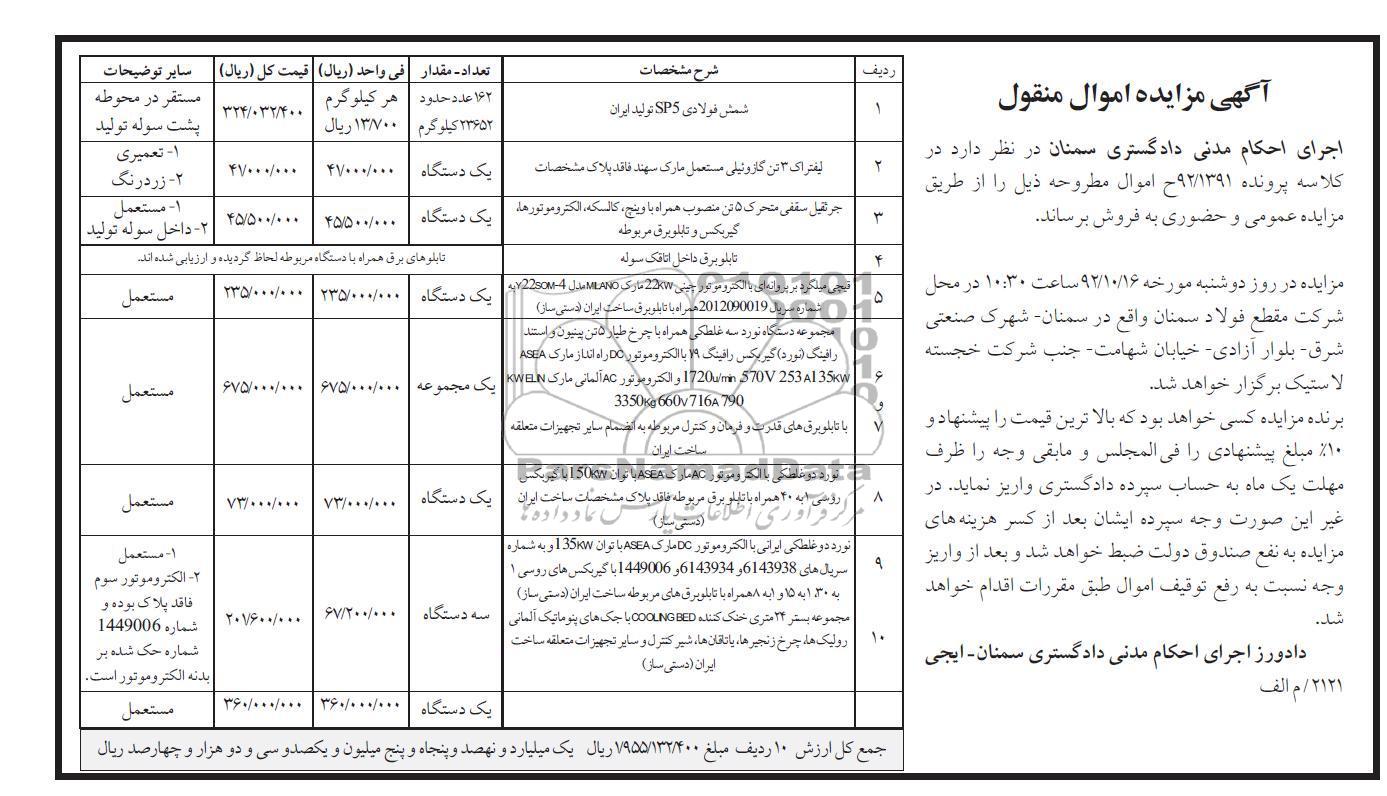 آگهی مزایده اموال منقول
اجرای احکام مدنی دادگستری سمنان در نظر دارد در
کلاسه پرونده ۹۲/۱۳۹۱ح اموال مطروحه ذیل را از طریق
مزایده عمومی و حضوری به فروش برساند.
مزایده در روز دوشنبه مورخه ۹۲/۱۰/۱۶ساعت ۱۰:۳۰ در محل
شرکت مقطع فولاد سمنان واقع در سمنان- شهرک صنعتی
شرق- بلوار آزادی- خیابان شهامت- جنب شرکت خجسته
لاستیک برگزار خواهد شد.
برنده مزایده کسی خواهد بود که بالا ترین قیمت را پیشنهاد و
۱۰٪ مبلغ پیشنهادی را فی‌المجلس و مابقی وجه را ظرف
مهلت یک ماه به حساب سپرده دادگستری واریز نماید. در
غیر این صورت وجه سپرده ایشان بعد از کسر هزینه‌های
مزایده به نفع صندوق دولت ضبط خواهد شد و بعد از واریز
وجه نسبت به رفع توقیف اموال طبق مقررات اقدام خواهد
شد.
دادورز اجرای احکام مدنی دادگستری سمنان- ایجی
۲۱۲۱/ م الف
ردیف شرح مشخصات تعداد- مقدار فی واحد (ریال) قیمت کل (ریال) سایر توضیحات
۱ شمش فولادی SP5 تولید ایران ۱۶۲عدد حدود ۲۳۶۵۲کیلوگرم هر کیلوگرم ۱۳/۷۰۰ریال ۳۲۴/۰۳۲/۴۰۰ مستقر در محوطه پشت سوله تولید
۲ لیفتراک ۳ تن گازوئیلی مستعمل مارک سهند فاقد پلاک مشخصات یک دستگاه ۴۷/۰۰۰/۰۰۰ ۴۷/۰۰۰/۰۰۰ ۱- تعمیری
۲- زرد رنگ
۳ جرثقیل سقفی متحرک ۵ تن منصوب همراه با وینچ، کالسکه، الکتروموتورها، یک دستگاه ۴۵/۵۰۰/۰۰۰ ۴۵/۵۰۰/۰۰۰ ۱- مستعمل
گیربکس و تابلوبرق مربوطه ۲- داخل سوله تولید
۴ تابلوبرق داخل اتاقک سوله تابلوهای برق همراه با دستگاه مربوطه لحاظ گردیده و ارزیابی شده اند.
۵ قیچی میلگرد بر پروانه‌ای با الکتروموتور چینی 22KW مارک MILANO مدل Y22SOM-4 به یک دستگاه ۲۳۵/۰۰۰/۰۰۰ ۲۳۵/۰۰۰/۰۰۰ مستعمل
شماره سریال 2012090019همراه با تابلوبرق ساخت ایران (دستی‌ساز)
۶ و ۷ مجموعه دستگاه نورد سه غلطکی همراه با چرخ طیار ۵ تن پینیون و استند
رافینگ (نورد) گیربکس رافینگ ۷۹ با الکتروموتور DC راه انداز مارک ASEA
1720u/min ،570V 253 A135KW و الکتروموتور AC آلمانی مارک KW ELIN یک مجموعه ۶۷۵/۰۰۰/۰۰۰ ۶۷۵/۰۰۰/۰۰۰ مستعمل
3350Kg 660V 716A 790
با تابلوبرق‌های قدرت و فرمان و کنترل مربوطه به انضمام سایر تجهیزات متعلقه
ساخت ایران
۸ نورد دو غلطکی با الکتروموتور AC مارک ASEA با توان 150KW با گیربکس یک دستگاه ۷۳/۰۰۰/۰۰۰ ۷۳/۰۰۰/۰۰۰ مستعمل
روسی ۱ به ۴۰ همراه با تابلو برق مربوطه فاقد پلاک مشخصات ساخت ایران
(دستی‌ساز)
۹ نورد دو غلطکی ایرانی با الکتروموتور DC مارک ASEA با توان 135KW و به شماره
سریال‌های 6143938 و 6143934 و 1449006 با گیربکس‌های روسی ۱
به ۳۰، ۱ به ۱۵ و ۱ به ۸ همراه با تابلوبرق‌های مربوطه ساخت ایران (دستی‌ساز) سه دستگاه ۶۷/۲۰۰/۰۰۰ ۲۰۱/۶۰۰/۰۰۰
۱- مستعمل
۲- الکتروموتور سوم
فاقد پلاک بوده و
شماره 1449006
شماره حک شده بر
بدنه الکتروموتور است.
۱۰ مجموعه بستر ۲۴ متری خنک کننده COOLING BED با جک‌های پنوماتیک آلمانی
رولیک‌ها، چرخ زنجیرها، یاتاقان‌ها، شیر کنترل و سایر تجهیزات متعلقه ساخت
ایران (دستی‌ساز)
یک دستگاه ۳۶۰/۰۰۰/۰۰۰ ۳۶۰/۰۰۰/۰۰۰ مستعمل
جمع کل ارزش ۱۰ ردیف مبلغ ۱/۹۵۵/۱۳۲/۴۰۰ریال یک میلیارد و نهصد و پنجاه و پنج میلیون و یکصدو سی و دو هزار و چهارصد ریال
ParsNamadData
مرکز فرآوری اطلاعات پارس نماد داده ها